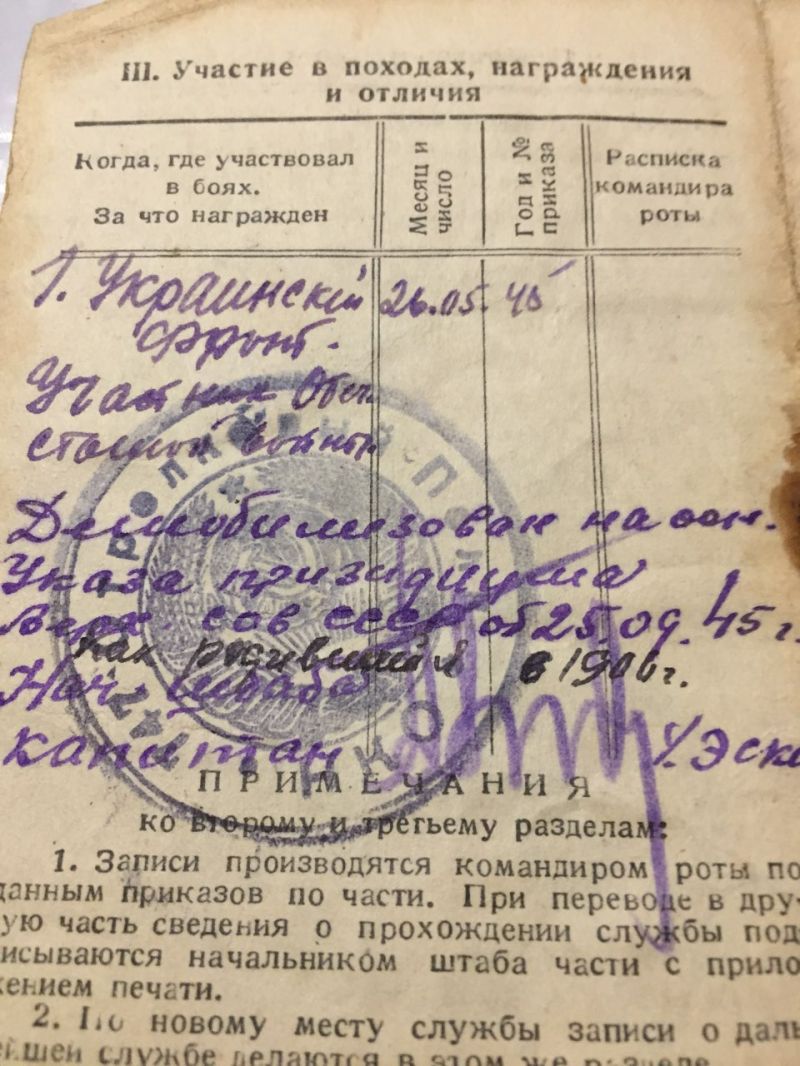 III. Участие в походах, награждения
и отличия
Когда, где участвовал
в боях.
За что награжден
Месяц и
число
Год и №
приказа
Расписка
командира
роты
1. Украинский 26.05.45
Фронт.
Участник Отеч
войны
Демобилизован на осн.
Указа призидиума
Верх. сов СССР от 25.09.45 г.
как родившийся в 1906 г.
Нач. штаба
капитан
ПРИМЕЧАНИЯ
ко второму и третьему разделам:
1. Записи производятся командиром роты по
данным приказов по части. При переводе в дру-
ую часть сведения о прохождении службы под-
исываются начальником штаба части с прило-
ением печати.
2. По новому месту службы записи о даль-
ейшей службе делаются в этом же разделе